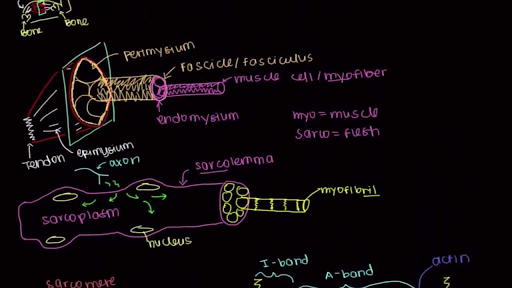 Bone
Bone
perimysium
Fascicle/fasciculus
muscle cell/myofiber
endomysium
myo=muscle
sarco=flesh
Tendon
epimysium
axon
sarcolemma
myofibril
sarcoplasm
nucleus
I-band
A-band
actin
sarcomere